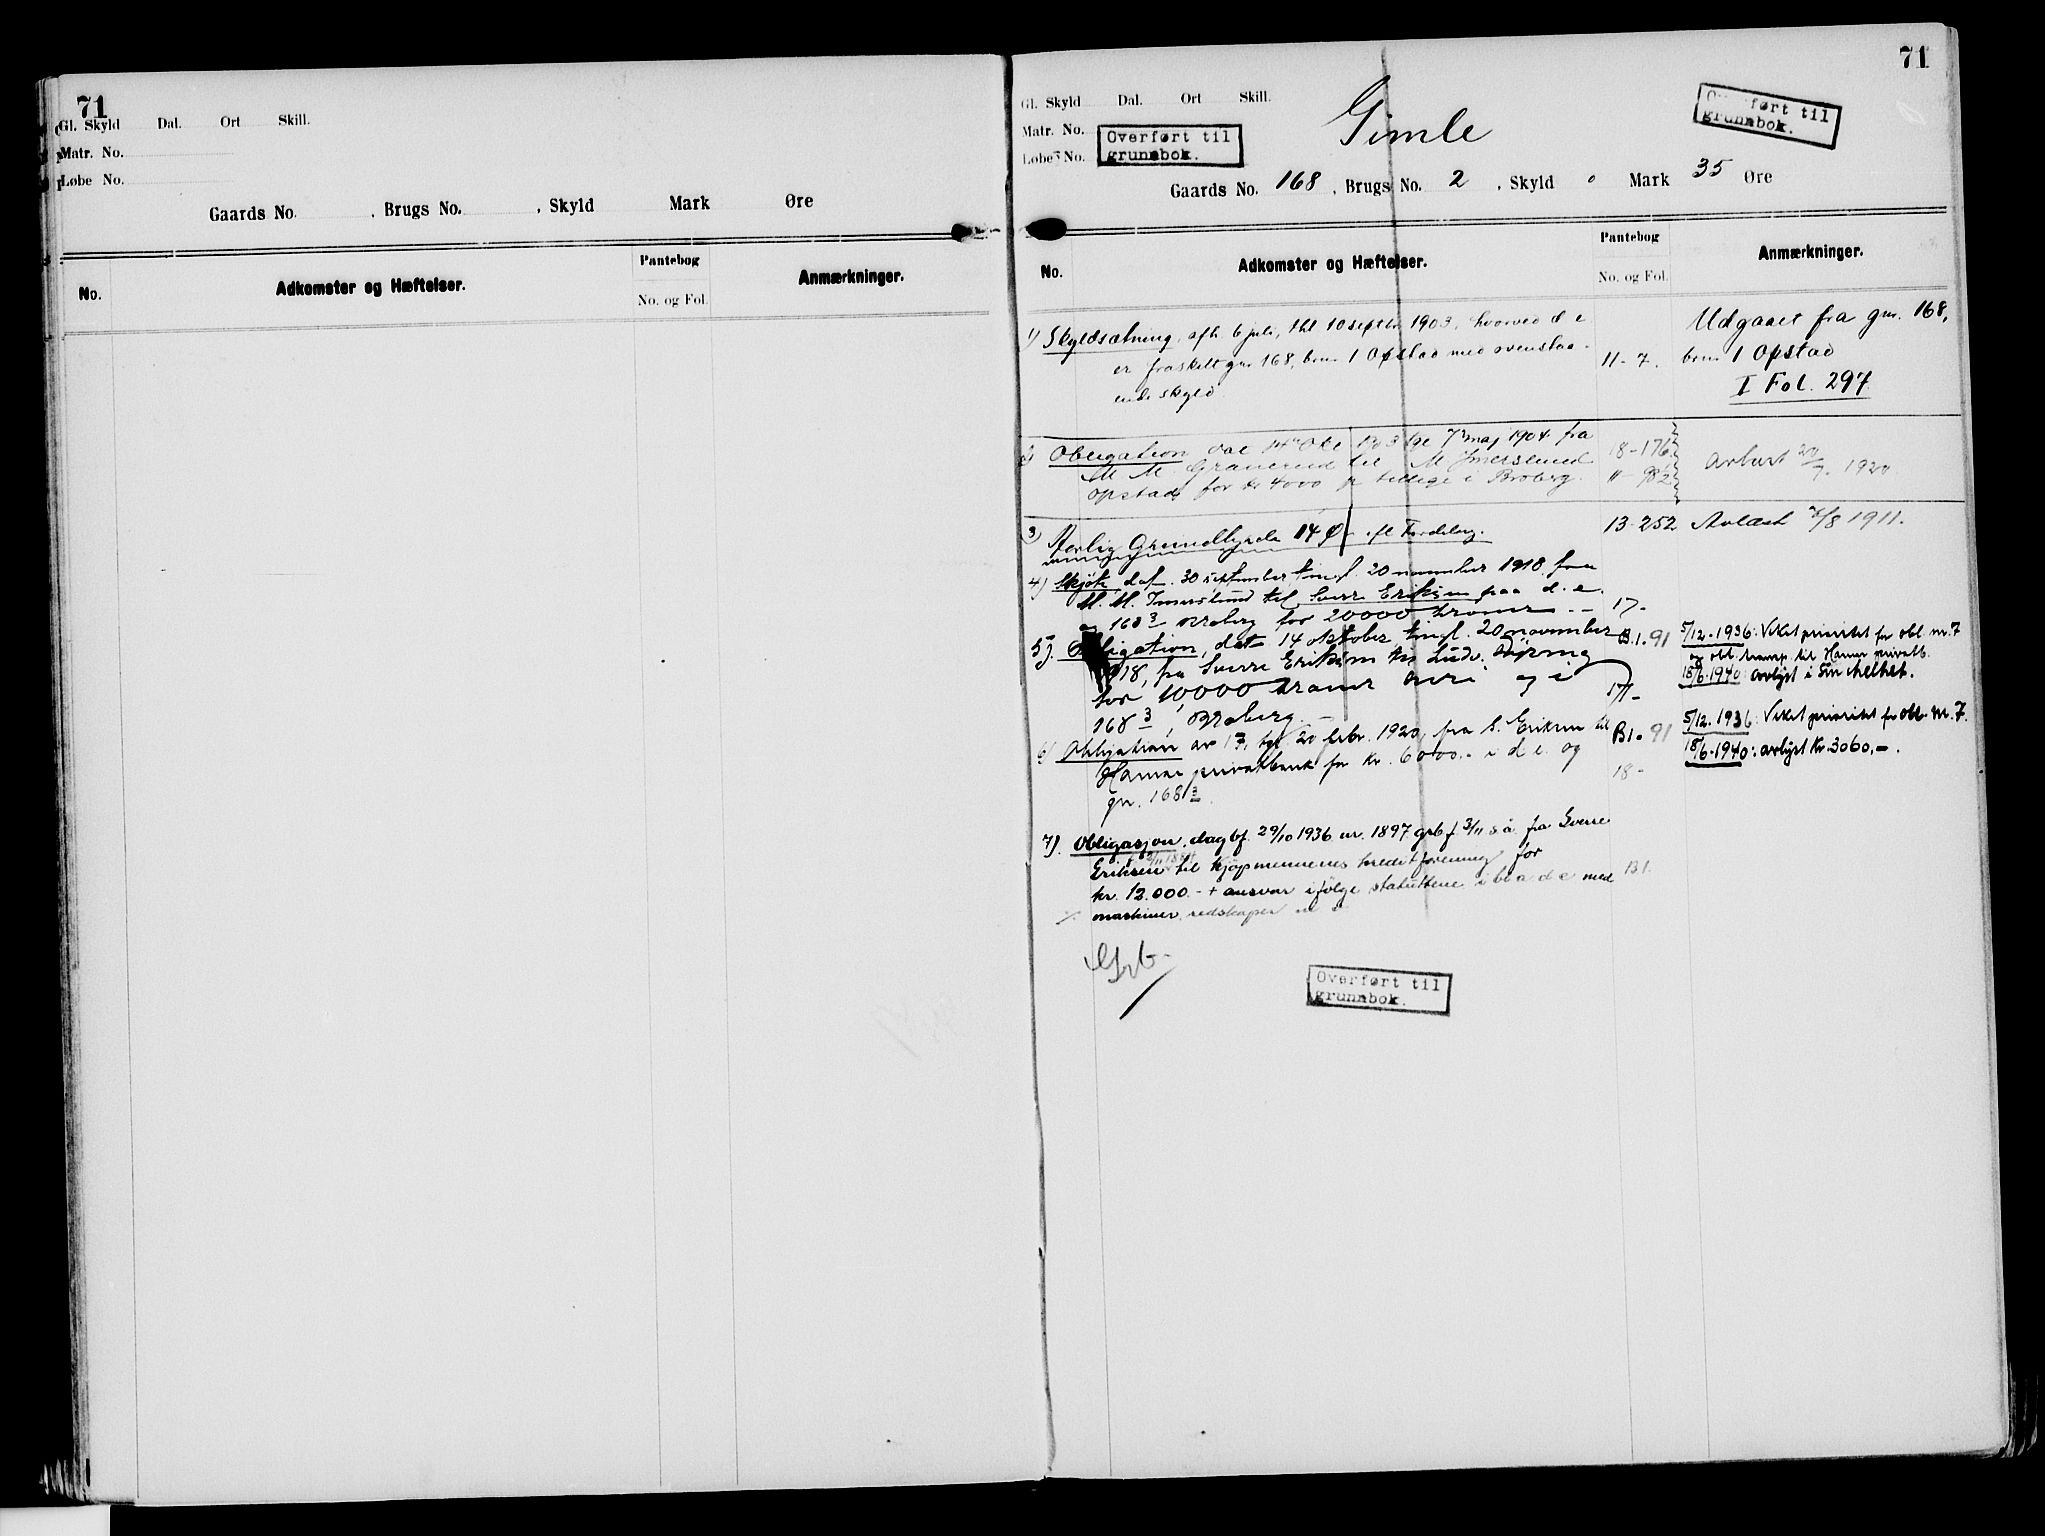 71
Gl. Skyld Dal. Ort Skill.
Matr. No.
Løbe No.
Gaards No. , Brugs No. , Skyld Mark Øre
No.
Adkomster og Hæftelser.
Pantebog
No. og Fol.
Anmærkninger.
71
Gl. Skyld Dal. Ort Skill.
Matr. No.
Løbe No.
Overført til
grunnbok.
Gimle
Overført til
grunnbok.
Gaards No. 168 , Brugs No. 2 , Skyld 0 Mark 35 Øre
No.
Adkomster og Hæftelser.
Pantebog
No. og Fol.
Anmærkninger.
1) Skyldsætning, afh. 6 juli, thl 10 septbr 1903, hvorved d e
er fraskilt gnr 168, brnr 1 Opstad med ovenstaa-
ende skyld
11- 7.
Udgaaet fra gnr. 168,
brnr 1 Opstad
I Fol. 297
2) Obligation dat 14 Okt 1903 tgl 7 maj 1904 fra
M M Graverud til M Imerslund
opstad for kr 4000 p tillige i Broberg.
18-176
" 982
avlyst 20/7. 1920
3) Aarlig Grundbyrde 14 Ø efl Fordeling.
13-252 Avlæst /8 1911.
4) Skjøte dat. 30 september, tingl. 20 november 1918 fra
M. M. Imerslund til Sverre Eriksen paa d. e.
og 168 3 Broberg for 20000 kroner --
17-
5). Obligation, dat 14 oktober tingl. 20 november
1918, fra Sverre Eriksen til Ludv.
for 10000 kroner heri og i
168 3, Broberg. -
B.1. 91
17-
5/12. 1936: Veket prioritet for obl. nr. 7
og obl. transp. til Hamar privatb.
18/6. 1940: avlyst i sin helhet.
6) Obligation av 17, tgl 20 febr. 1920, fra S. Eriksen til
Hamar privatbank for kr. 6000.- i d e. og
gn. 168 3.
B1. 91
18-
5/12. 1936: Veket prioritet for obl. nr. 7.
18/6. 1940: avlyst kr. 3060,-.
7). Obligasjon, dagbf. 29/10 1936 nr. 1897 grbf 3/11 s å. fra Sverre
Eriksen til Kjøpmennenes kreditforening for
kr. 12.000.- + ansvar ifølge statuttene i bl a d e med
maskiner, redskaper m v
B1.
Grb.
Overført til
grunnbok.